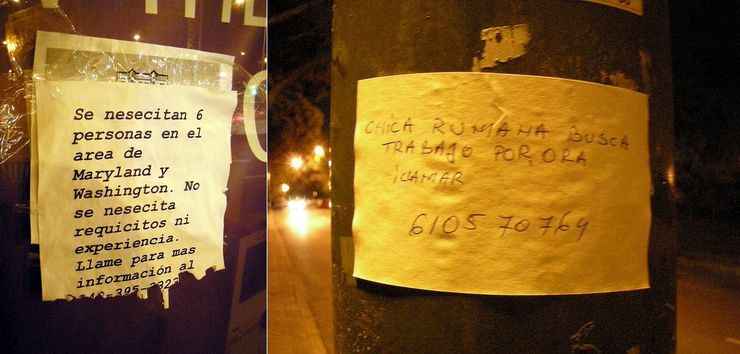 Se nesecitan 6
personas en el
area de
Maryland y
Washington. No
se nesecita
requicitos ni
experiencia.
Llame para mas
información al
CHICA RUMANA BUSCA
TRABAJO POR, ORA
6105 70764